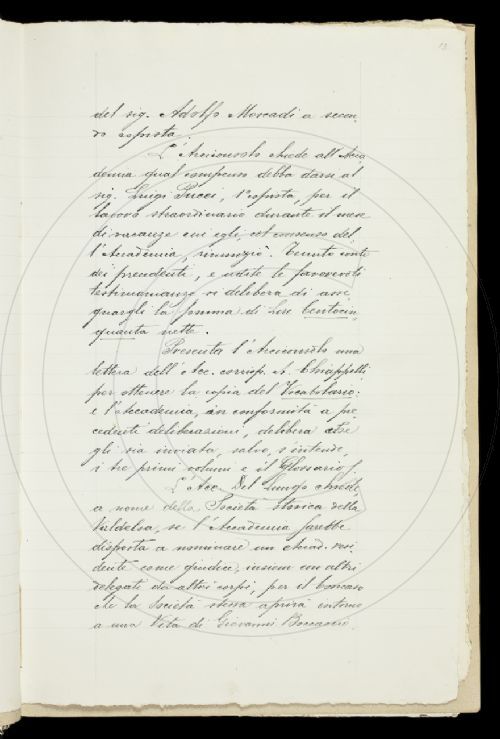 del sig. Adolfo Mercadi a secon-
do copista.
L'Arciconsolo chiede all'Acca-
demia qual compenso debba darsi al
sig. Luigi Pucci, 1° copista, per il
lavoro straordinario durante il mese
di vacanze cui egli, col consenso del-
l'Accademia, rinunziò. Tenuto conto
dei precedenti, e udite le favorevoli
testimonianze si delibera di asse-
gnargli la somma di Lire Centocin-
quanta nette.
Presenta l'Arciconsolo una
lettera dell'Acc. corrisp. A. Chiappelli
per ottenere la copia del Vocabolario:
e l'Accademia, in conformità a pre-
cedenti deliberazioni, delibera che
gli sia inviata, salvo, s'intende,
i tre primi volumi e il Glossario.
L'Acc. Del Lungo chiede,
a nome della Società storica della
Valdelsa, se l'Accademia sarebbe
disposta a nominare un Accad. resi-
dente come giudice, insieme con altri
delegati da altri corpi, per il Concorso
che la Società stessa aprirà intorno
a una Vita di Giovanni Boccaccio.